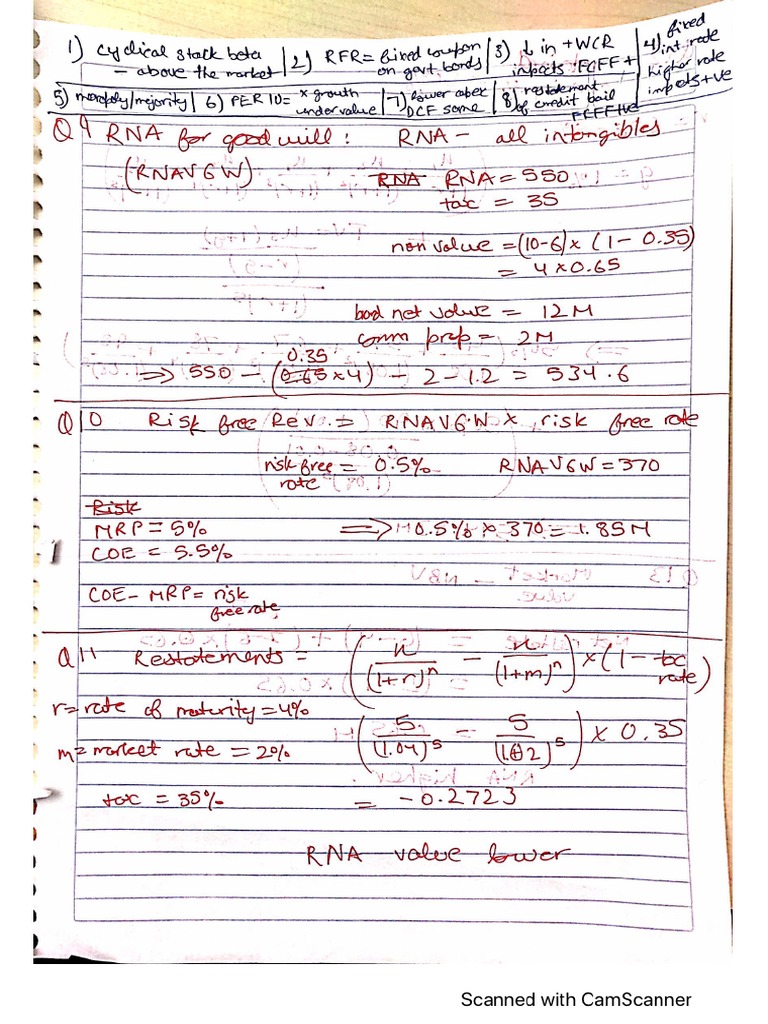 1) cyclical stack beta | 2) RFR = fixed coupon | 3) ↓ in + WCR | 4) fixed
– above the market | on govt bonds | impacts FCFF + | int rate
higher rate
impacts +ve
5) monopoly/majority | 6) PER 10 = x growth | 7) lower capex | 8) restatement
under value | DCF same | of credit bail
FCFF +ve
Q9 RNA for goodwill : RNA – all intengibles
(RNAVGW) RNA RNA = 550
tax = 35
non value = (10-6) x (1 – 0.35)
= 4 x 0.65
bond net value = 12M
comm prep = 2M
0.35
=> 550 – (0.65 x 4) – 2 – 1.2 = 534.6
Q10 Risk free Rev. = RNAVGW x risk free rate
risk free = 0.5% RNAVGW = 370
rate
Risk
MRP = 5% => 0.5% x 370 = 1.85M
COE = 5.5%
COE – MRP = risk
free rate
Q11 Restatements = (n/(1+r)^n – n/(1+m)^n) x (1 – tax rate)
r = rate of maturity = 4%
(5/(1.04)^5 – 5/(1.02)^5) x 0.35
m = market rate = 2%
tax = 35% = -0.2723
RNA value lower
Scanned with CamScanner